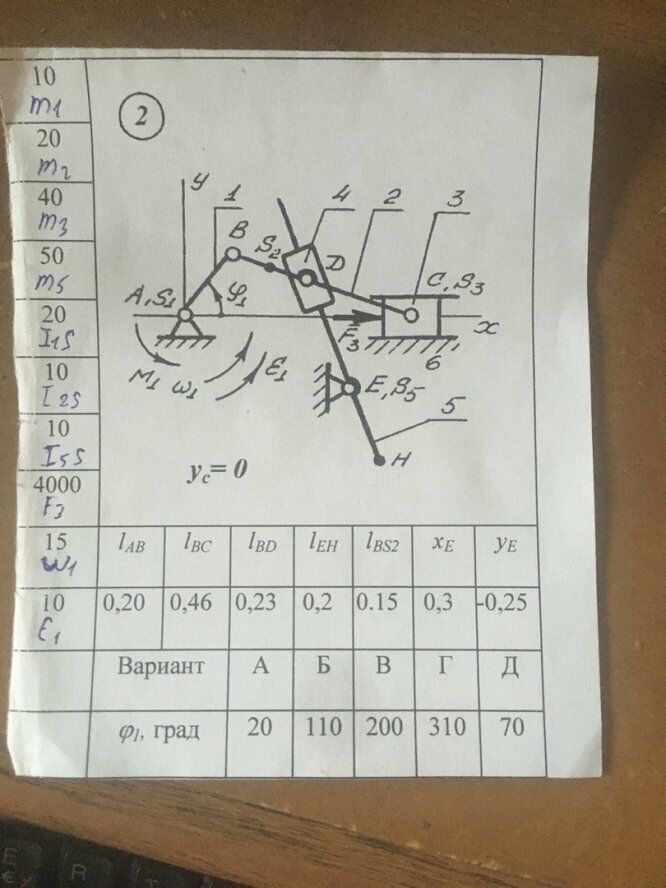 10
m1
20
m2
40
m3
50
m5
20
I1S
10
I2S
10
I5S
4000
F3
15
ω1
10
ε1
2
y
1
B
S2
4
D
2
3
C, S3
A, S1
φ1
x
F3
6
M1 ω1 ε1
E, S5
5
H
yc= 0
lAB lBC lBD lEH lBS2 xE yE
0,20 0,46 0,23 0,2 0.15 0,3 -0,25
Вариант А Б В Г Д
φ1, град 20 110 200 310 70